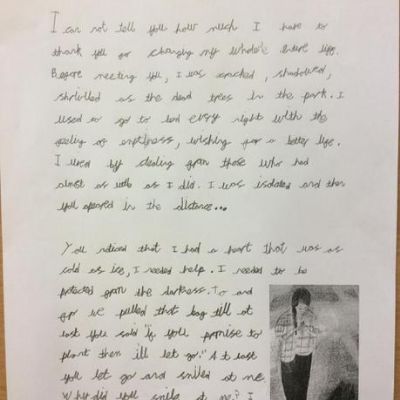 I can not tell you how much I have to
thank you for changing my whole entire life.
Before meeting you, I was cracked, shadowed,
shrivilled as the dead trees in the park. I
used to go to bed every night with the
feeling of emptiness, wishing for a better life.
I lived by stealing from those who had
almost as little as I did. I was isolated and then
you apeared in the distance...
You noticed that I had a heart that was as
cold as ice, I needed help. I needed to be
protected from the darkness. To and
fro we pulled that bag till at
last you said "if you promise to
plant then ill let go." At last
you let go and smiled at me.
Why did you smile at me? I